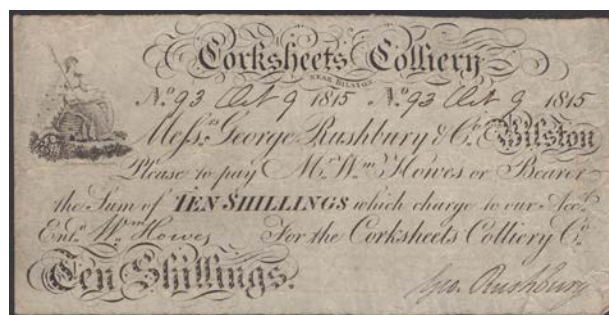 Corksheets Colliery
NEAR BILSTON
No. 93 Oct 9 1815 No. 93 Oct 9 1815
Messrs. George Rushbury & Co. Bilston
Please to pay Mr. Wm. Howes or Bearer
the Sum of TEN SHILLINGS which charge to our Acct.
Entd. Wm. Howes For the Corksheets Colliery Co.
Ten Shillings.
Geo. Rushbury